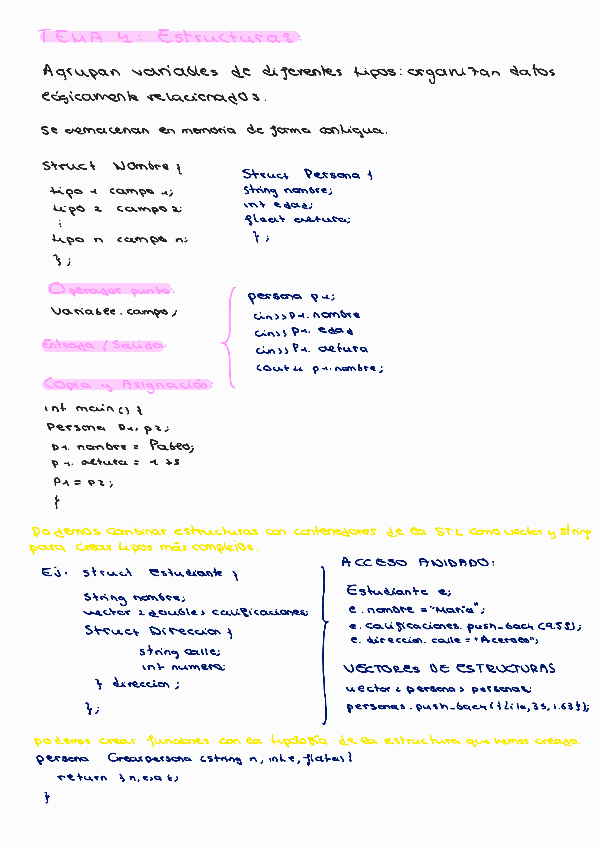 TEMA 4: Estructuras
Agrupan variables de diferentes tipos: organizan datos
lógicamente relacionados.
Se almacenan en memoria de forma contigua.
Struct Nombre {
tipo 1 campo 1;
tipo 2 campo 2;
:
tipo n campo n;
};
Struct Persona {
string nombre;
int edad;
float altura;
};
Operador punto:
variable.campo;
Entrada / Salida:
Copia y Asignación:
persona p1;
cin>>p1.nombre
cin>>p1.edad
cin>>p1.altura
cout<<p1.nombre;
int main() {
Persona p1, p2;
p1.nombre = Pablo;
p1.altura = 1.75
P1 = p2;
}
Podemos combinar estructuras con contenedores de la STL como vector y string
para crear tipos más complejos.
Ej. struct Estudiante {
String nombre;
vector<double> calificaciones;
Struct Direccion {
string calle;
int numero;
} direccion;
};
ACCESO ANIDADO:
Estudiante e;
e.nombre = "María";
e.calificaciones.push_back(9.58);
e.direccion.calle = "Aceroso";
VECTORES DE ESTRUCTURAS
vector<persona> personas
personas.push_back({lila, 35, 1.63});
podemos crear funciones con la tipología de la estructura que hemos creado.
persona Crearpersona (string n, int e, float a) {
return {n, e, a};
}